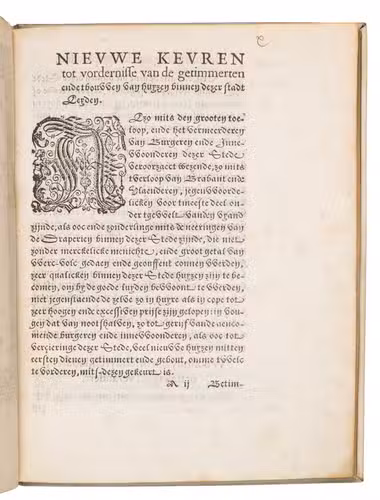 NIEVWE KEVREN
tot vordernisse van de getimmerten
ende thouwen van huyzen binnen dezer stadt
Leyden.
Alzo mits den grooten toe-
loop, ende het vermeerderen
van Burgeren ende Inne-
woonderen dezer Stede
veroorzaect wezende, zo mits
tverloop van Brabant ende
Vlaenderen, jegenwoorde-
licken voor tmeeste deel on-
der tgewelt vanden vyand
zijnde, als ooc ende zonderlinge mits de neeringen van
de Draperien binnen dezer Stede zijnde, die niet
zonder merckelicke menichte, ende groot getal van
werc-volc gedaen ende geouffent connen werden,
zeer qualicken binnen dezer Stede huyzen zijn te be-
comen, om by de goede luyden bewoont te werden,
niet jegenstaende de zelve zo in huyre als in cope tot
zeer hogen ende excessiven prise zijn gelopen: in vou-
gen dat van nootshalven, zo tot gerijf van de aenco-
mende burgeren ende innewoonderen, als ooc tot
verzieringe dezer Stede, veel nieuwe huyzen mitten
eersten dienen getimmert ende gebout, omme twelcke
te vorderen, mits-dezen gekeurt is.
A ij Betim-